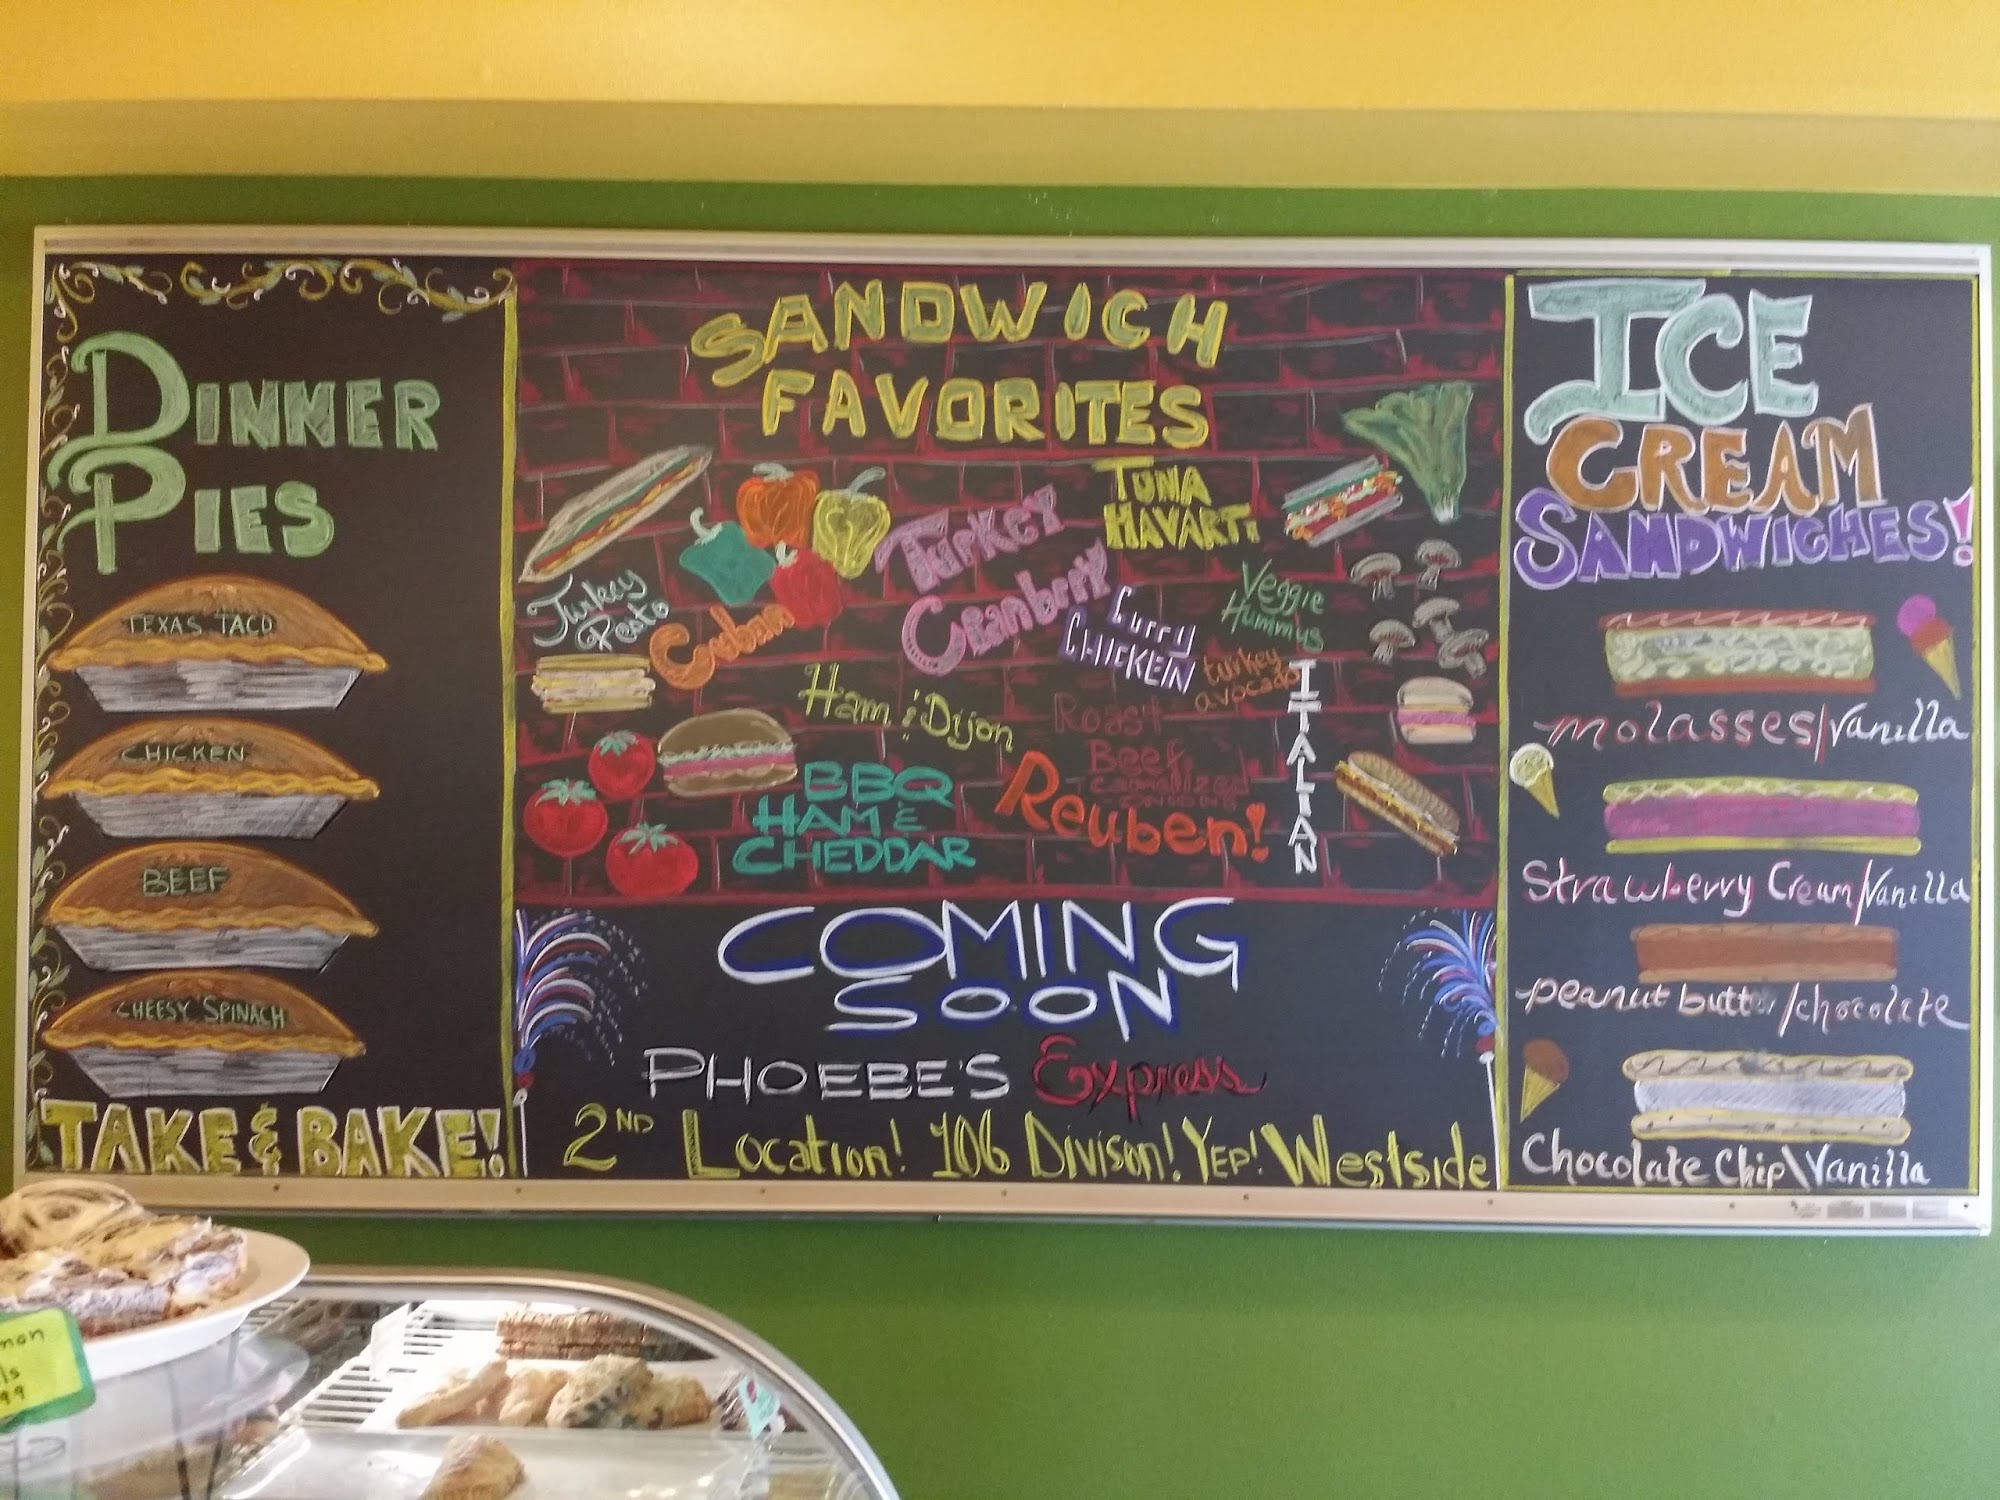 DINNER
PIES
TEXAS TACO
CHICKEN
BEEF
CHEESY SPINACH
TAKE & BAKE!
SANDWICH
FAVORITES
Turkey
Pesto
Cuban
Turkey
Cranberry
TUNA
HAVARTi
Curry
CHICKEN
Veggie
Hummus
turkey
avocado
Ham & Dijon
Roast
Beef
ITALIAN
BBQ
HAM &
CHEDDAR
Reuben!
COMING
SOON
PHOEBE'S Express
2ND Location! 106 Divison! YEP! Westside
ICE
CREAM
SANDWICHES!
molasses/vanilla
Strawberry Cream/Vanilla
peanut butter/chocolate
Chocolate Chip\Vanilla